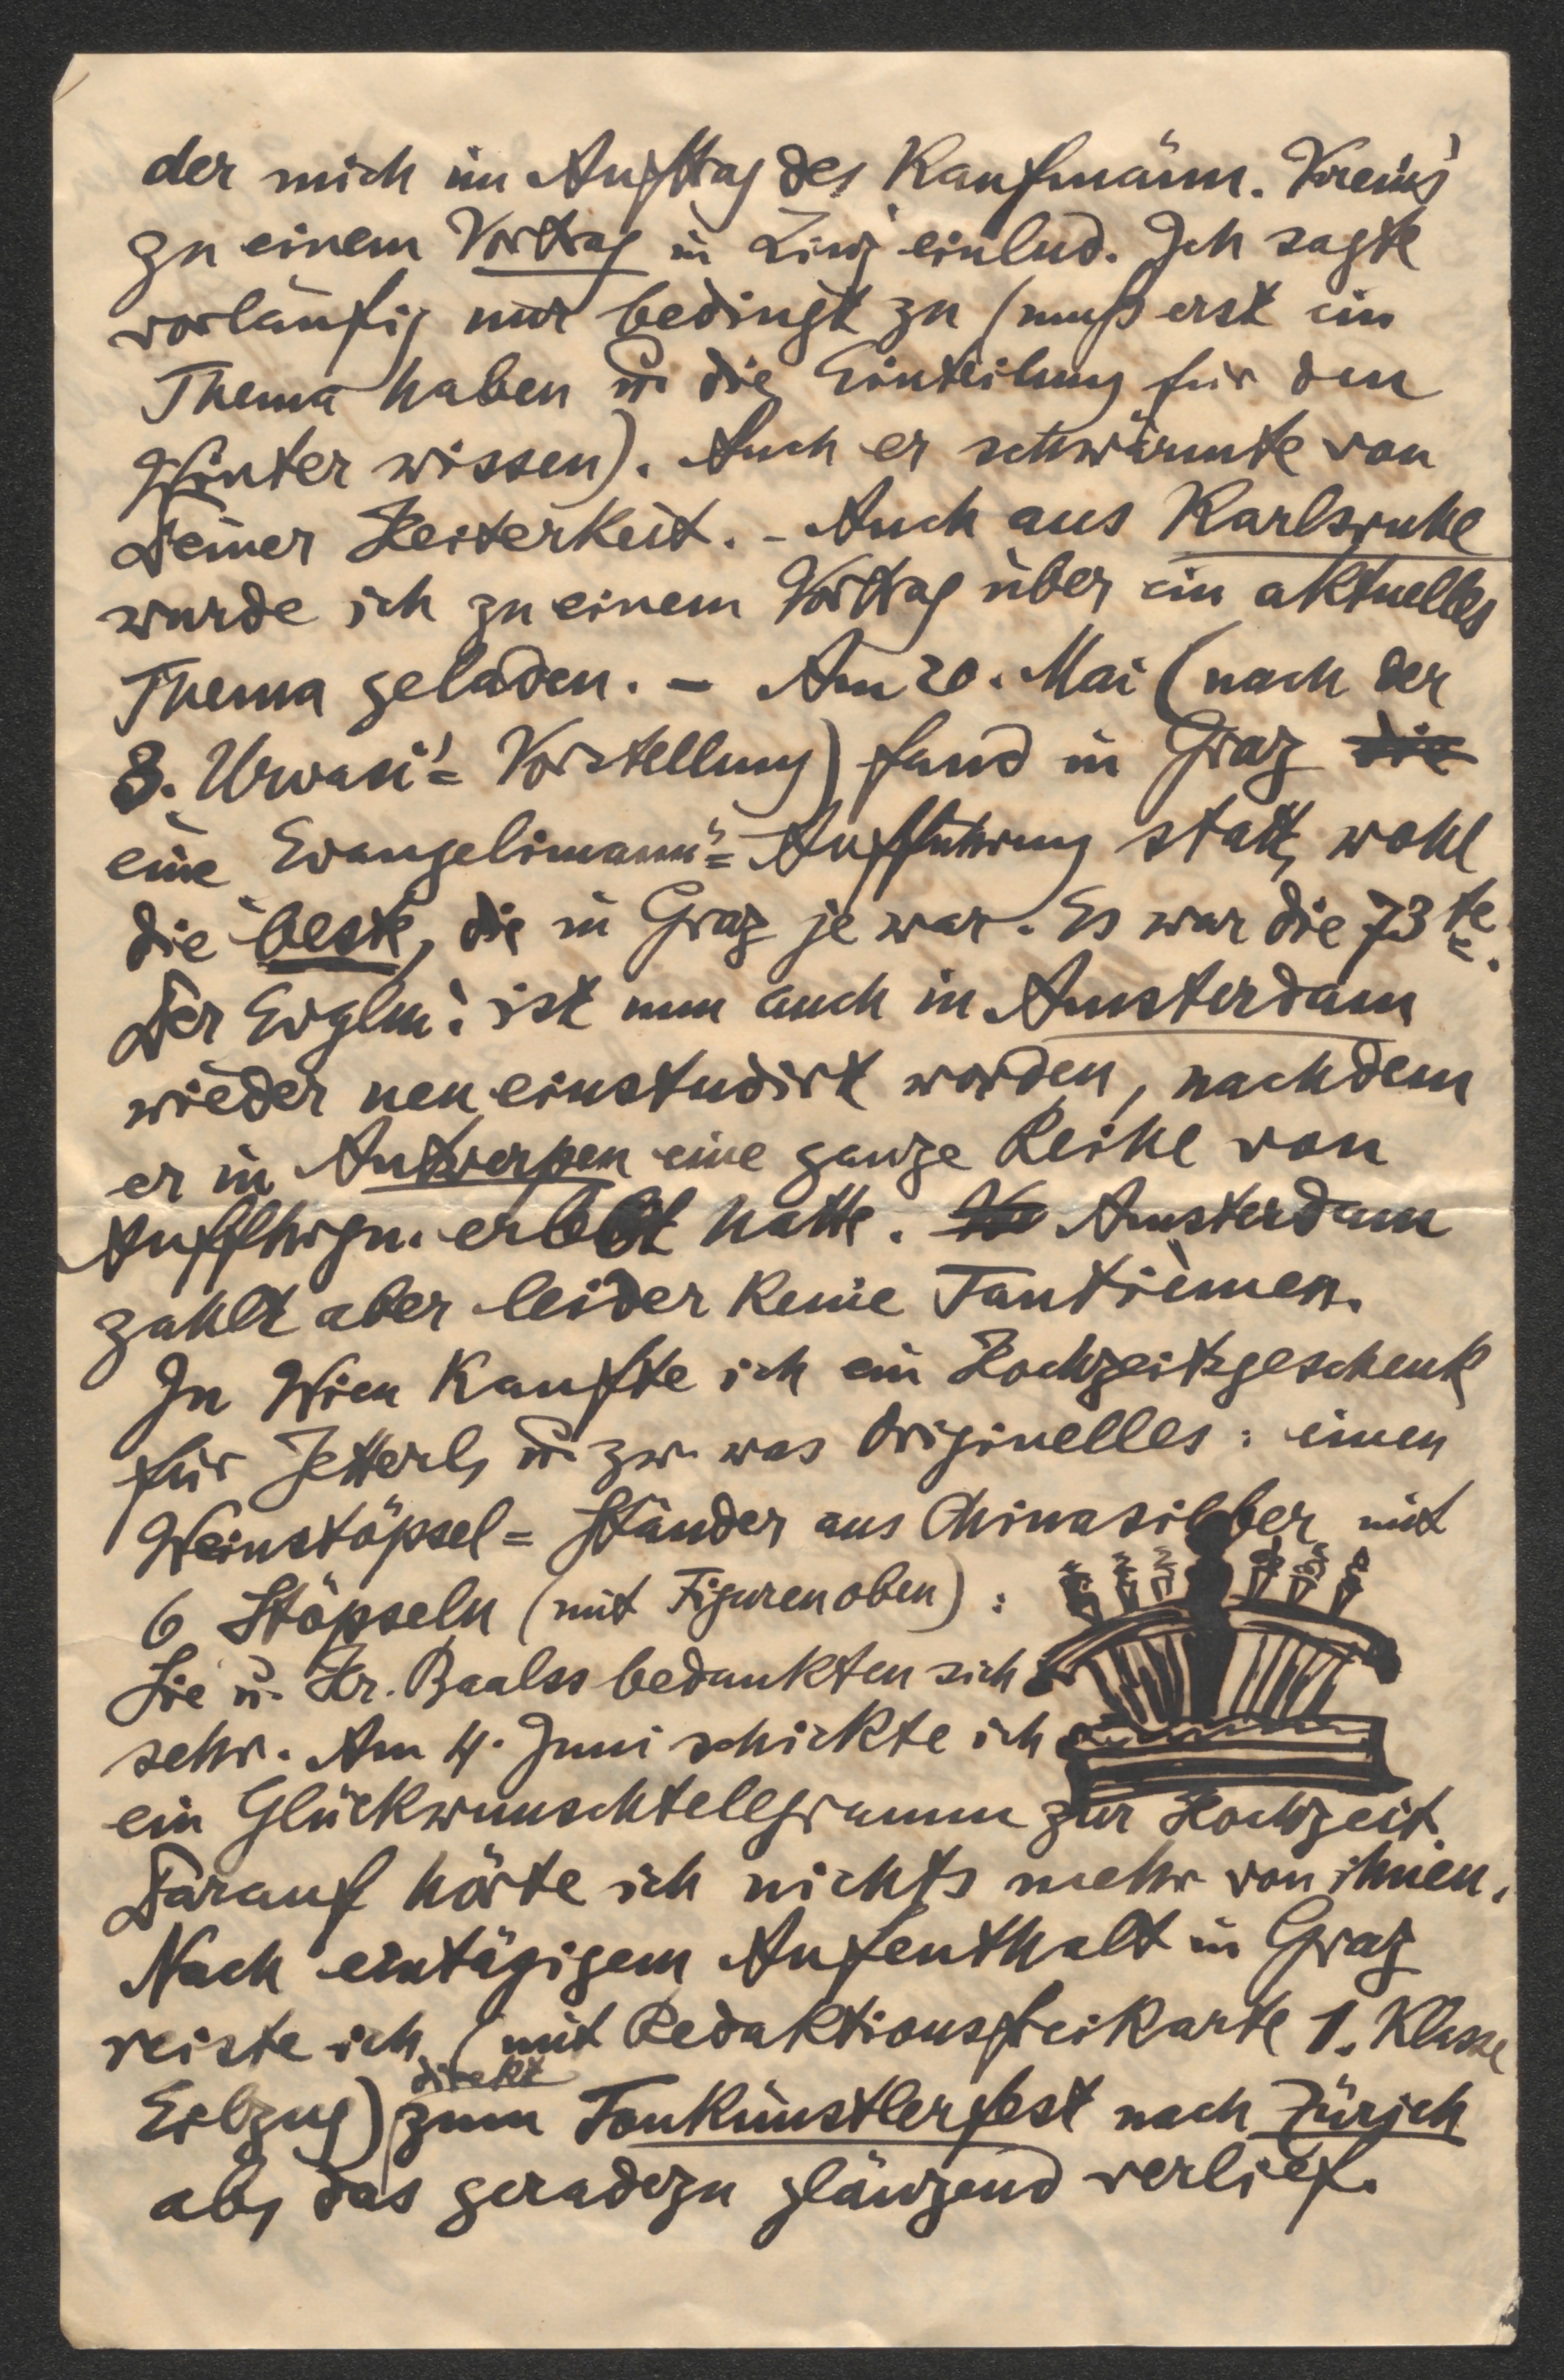 der mich im Auftrag des Kaufmänn. Vereins
zu einem Vortrag in Linz einlud. Ich sagte
vorläufig nur bedingt zu (muß erst ein
Thema haben u. die Einteilung für den
Winter wissen). Auch er schwärmte von
Deiner Heiterkeit. - Auch aus Karlsruhe
wurde ich zu einem Vortrag über ein aktuelles
Thema geladen. - Am 20. Mai (nach der
3. Urvasi'= Vorstellung) fand in Graz die
eine Evangelimann"= Aufführung statt, wohl
die beste, die in Graz je war. Es war die 73te.
Der Evglm: ist nun auch in Amsterdam
wieder neu einstudirt worden, nachdem
er in Antwerpen eine ganze Reihe von
Aufflhrgn. erlebt hatte. Amsterdam
zahlt aber leider keine Tantièmen.
In Wien kaufte ich ein Hochzeitsgeschenk
für Jetterl, u. zw. was Originelles: einen
Weinstöpsel= Ständer aus Chinasilber mit
6 Stöpseln (mit Figuren oben):
Sie u. Hr. Baalss bedankten sich
sehr. Am 4. Juni schickte ich
ein Glückwunschtelegramm zur Hochzeit.
Darauf hörte ich nichts mehr von ihnen.
Nach eintägigem Aufenthalt in Graz
reiste ich (mit Redaktionsfreikarte 1. Klasse
Eilzug) direkt zum Tonkünstlerfest nach Zürich
ab, das geradezu glänzend verlief.